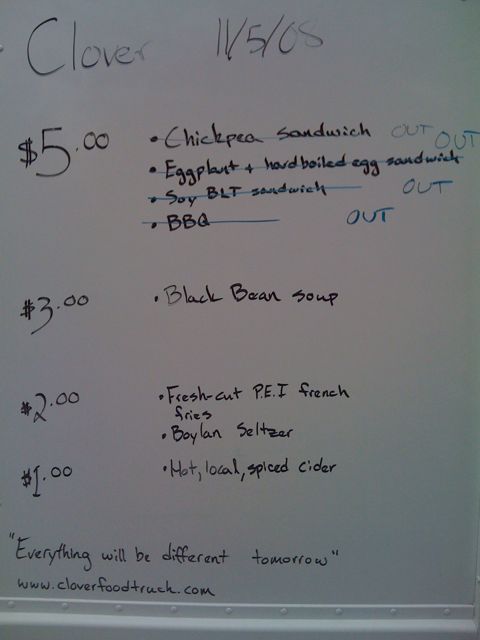 Clover 11/5/08
$5.00 • Chickpea sandwich OUT OUT
• Eggplant + hardboiled egg sandwich
• Soy BLT sandwich OUT
• BBQ OUT
$3.00 • Black Bean soup
$2.00 • Fresh-cut P.E.I french
fries
• Boylan Seltzer
$1.00 • Hot, local, spiced cider
"Everything will be different tomorrow"
www.cloverfoodtruck.com